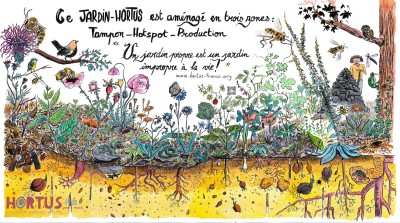 Ce JARDIN-HORTUS est aménagé en trois zones :
Tampon-Hotspot-Production
« Un jardin propre est un jardin
impropre à la vie ! »
www.hortus-france.org
HORTUS